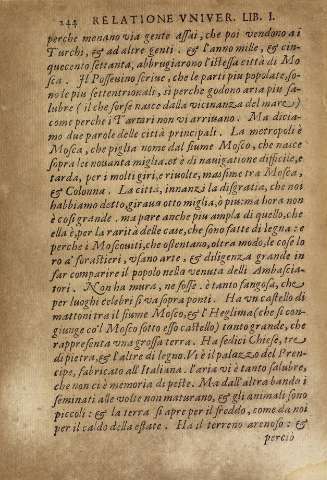 244 RELATIONE VNIVER. LIB. I.
perche menano via gente assai, che poi vendono a i
Turchi, & ad altre genti. & l'anno mille, & cin-
quecento settanta, abbrugiarono l'istessa città di Mo
sca. Il Posseuino scriue, che le parti piu popolate, so-
no le piu settentrionali, sì perche godono aria piu sa-
lubre (il che forse nasce dalla vicinanza del mare)
come perche i Tartari non vi arriuano. Ma dicia-
mo due parole delle città principali. La metropoli è
Mosca, che piglia nome dal fiume Mosco, che nasce
sopra lei nouanta miglia. et è di nauigatione difficile, e
tarda, per i molti giri, e riuolte, massime tra Mosca,
& Colonna. La città, innanzi la disgratia, che noi
habbiamo detto, giraua otto miglia, ò piu: ma hora non
è cosi grande. ma pare anche piu ampla di quello, che
ella è, per la rarità delle case, che sono fatte di legna: e
perche i Moscouiti, che ostentano, oltra modo, le cose lo
ro a' forastieri, vsano arte, & diligenza grande in
far comparire il popolo nella venuta delli Ambascia-
tori. Non ha mura, ne fosse. è tanto fangosa, che
per luoghi celebri si va sopra ponti. Ha vn castello di
mattoni tra il fiume Mosco, & l'Heglima (che si con-
giunge co'l Mosco sotto esso castello) tanto grande, che
rappresenta vna grossa terra. Ha sedici Chiese, tre
di pietra, & l'altre di legno. Vi è il palazzo del Pren-
cipe, fabricato all'Italiana. l'aria vi è tanto salubre,
che non ci è memoria di peste. Ma dall'altra banda i
seminati alle volte non maturano, & gli animali sono
piccoli: & la terra si apre per il freddo, come da noi
per il caldo della estate. Ha il terreno arenoso: &
percio